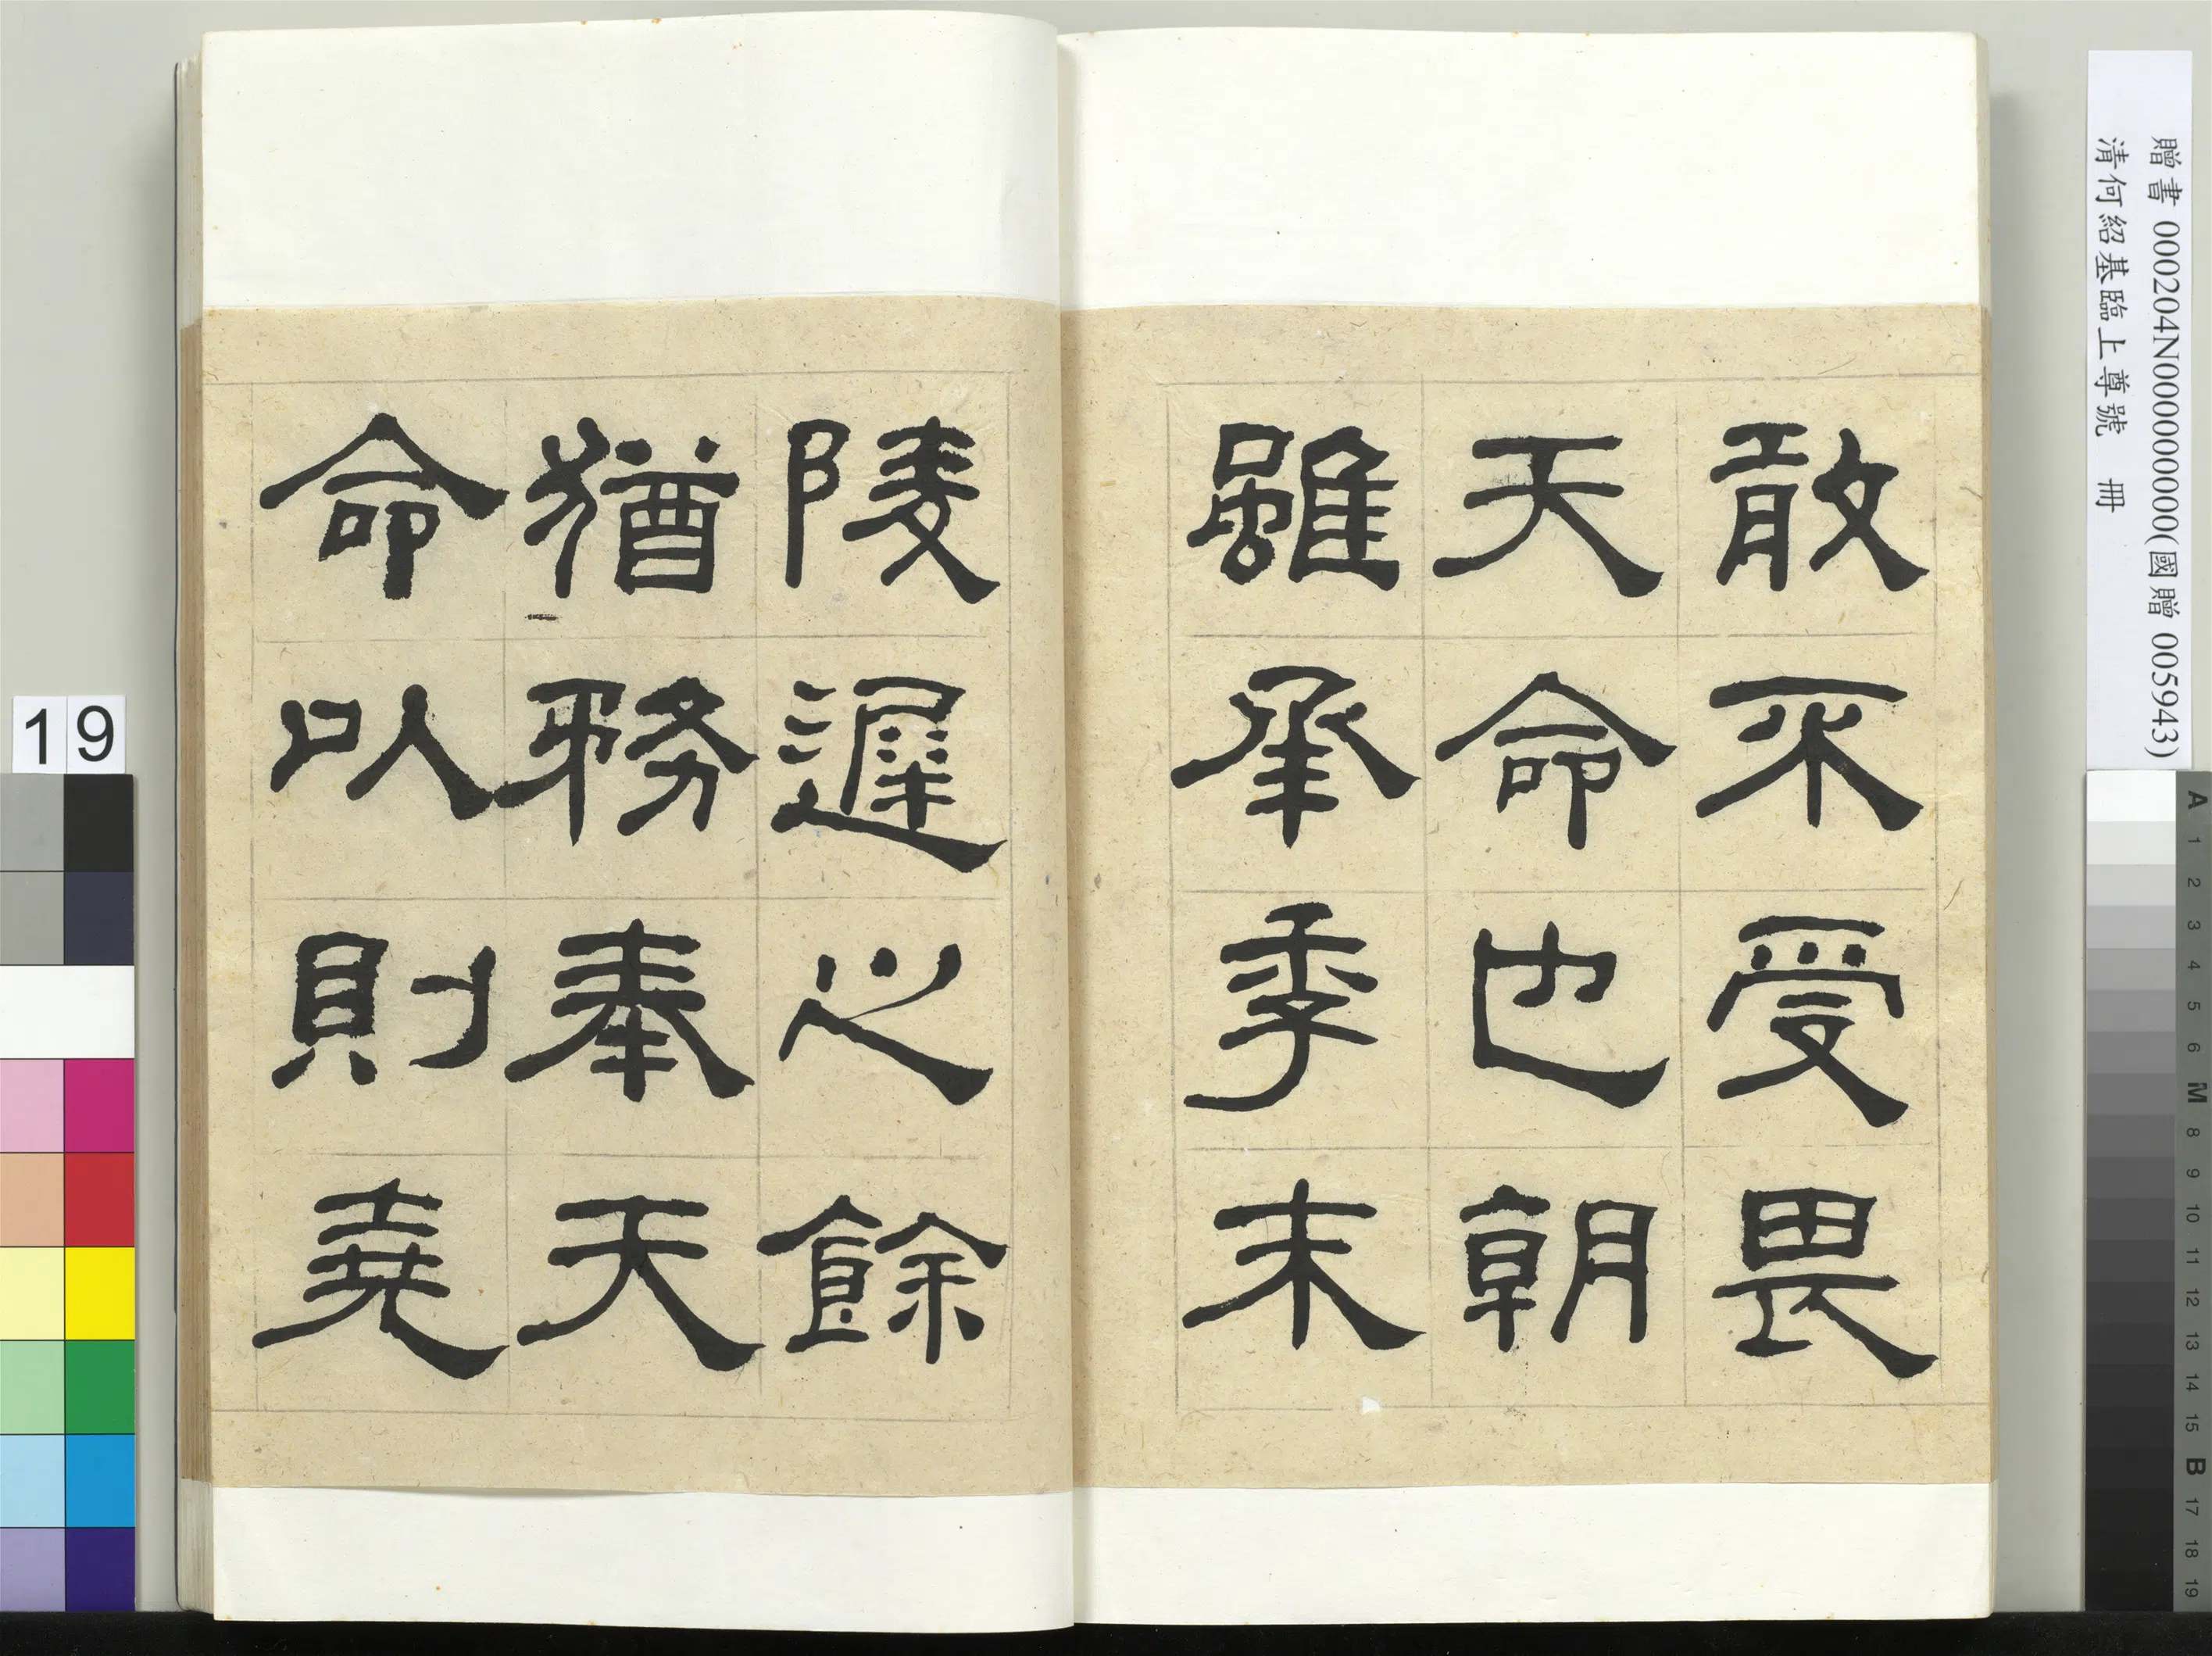 敢不受畏
天命也朝
雖承季末
陵遲之餘
猶務奉天
命以則堯
贈書 000204N000000000(國贈 005943)
清何紹基臨上尊號 冊
19
A 1 2 3 4 5 6 M 8 9 10 11 12 13 14 15 B 17 18 19